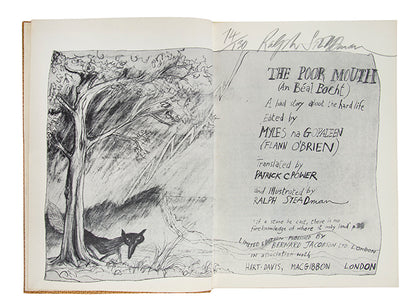 14/130 Ralph Steadman
THE POOR MOUTH
(An Béal Bocht)
A bad story about the hard life
Edited by
MYLES na GOPALEEN
(FLANN O'BRIEN)
Translated by
PATRICK C POWER
and illustrated by
RALPH STEADman
if a stone be cast, there is no
foreknowledge of where it may land
LIMITED EDITION PUBLISHED By
BERNARD JACOBSON LTD London
in association with
HART-DAVIS, MACGIBBON LONDON